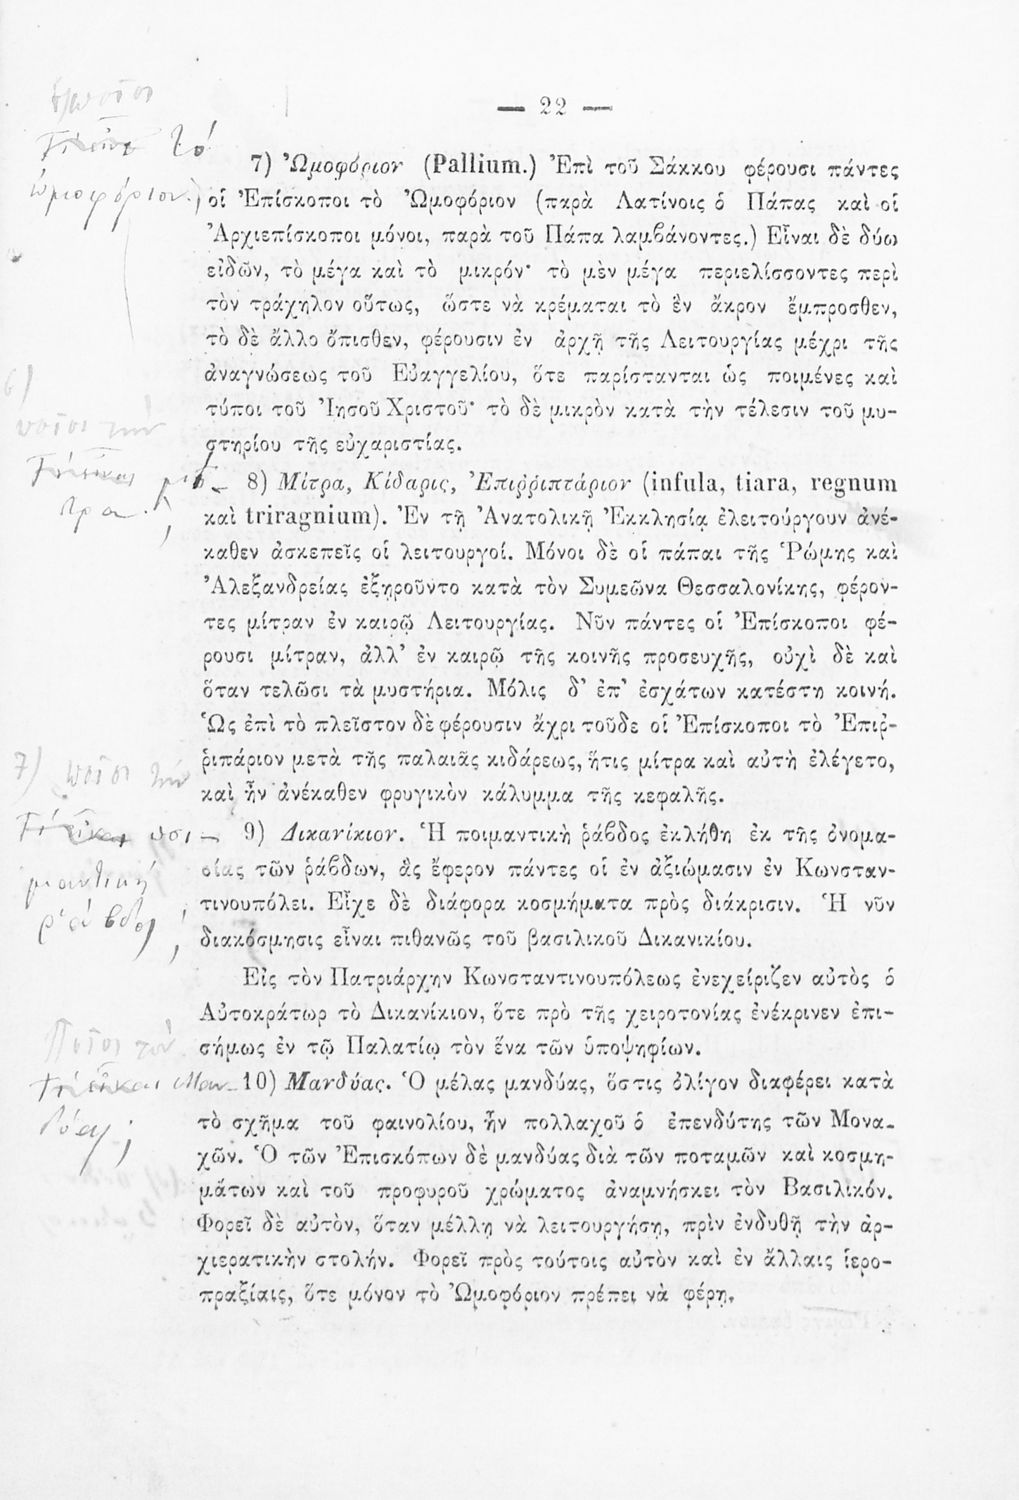 — 22 —
7) Ὠμοφόριον (Pallium.) Ἐπὶ τοῦ Σάκκου φέρουσι πάντες
οἱ Ἐπίσκοποι τὸ Ὠμοφόριον (παρὰ Λατίνοις ὁ Πάπας καὶ οἱ
Ἀρχιεπίσκοποι μόνοι, παρὰ τοῦ Πάπα λαμβάνοντες.) Εἶναι δὲ δύω
εἰδῶν, τὸ μέγα καὶ τὸ μικρόν· τὸ μὲν μέγα περιελίσσοντες περὶ
τὸν τράχηλον οὕτως, ὥστε νὰ κρέμαται τὸ ἓν ἄκρον ἔμπροσθεν,
τὸ δὲ ἄλλο ὄπισθεν, φέρουσιν ἐν ἀρχῇ τῆς Λειτουργίας μέχρι τῆς
ἀναγνώσεως τοῦ Εὐαγγελίου, ὅτε παρίστανται ὡς ποιμένες καὶ
τύποι τοῦ Ἰησοῦ Χριστοῦ· τὸ δὲ μικρὸν κατὰ τὴν τέλεσιν τοῦ μυ-
στηρίου τῆς εὐχαριστίας.
8) Μίτρα, Κίδαρις, Ἐπιῤῥιπτάριον (infula, tiara, regnum
καὶ triragnium). Ἐν τῇ Ἀνατολικῇ Ἐκκλησίᾳ ἐλειτούργουν ἀνέ-
καθεν ἀσκεπεῖς οἱ λειτουργοί. Μόνοι δὲ οἱ πάπαι τῆς Ῥώμης καὶ
Ἀλεξανδρείας ἐξῃροῦντο κατὰ τὸν Συμεῶνα Θεσσαλονίκης, φέρον-
τες μίτραν ἐν καιρῷ Λειτουργίας. Νῦν πάντες οἱ Ἐπίσκοποι φέ-
ρουσι μίτραν, ἀλλ' ἐν καιρῷ τῆς κοινῆς προσευχῆς, οὐχὶ δὲ καὶ
ὅταν τελῶσι τὰ μυστήρια. Μόλις δ' ἐπ' ἐσχάτων κατέστη κοινή.
Ὡς ἐπὶ τὸ πλεῖστον δὲ φέρουσιν ἄχρι τοῦδε οἱ Ἐπίσκοποι τὸ Ἐπιῤ-
ῥιπάριον μετὰ τῆς παλαιᾶς κιδάρεως, ἥτις μίτρα καὶ αὐτὴ ἐλέγετο,
καὶ ἦν ἀνέκαθεν φρυγικὸν κάλυμμα τῆς κεφαλῆς.
9) Δικανίκιον. Ἡ ποιμαντικὴ ῥάβδος ἐκλήθη ἐκ τῆς ὀνομα-
σίας τῶν ῥάβδων, ἃς ἔφερον πάντες οἱ ἐν ἀξιώμασιν ἐν Κωνσταν-
τινουπόλει. Εἶχε δὲ διάφορα κοσμήματα πρὸς διάκρισιν. Ἡ νῦν
διακόσμησις εἶναι πιθανῶς τοῦ βασιλικοῦ Δικανικίου.
Εἰς τὸν Πατριάρχην Κωνσταντινουπόλεως ἐνεχείριζεν αὐτὸς ὁ
Αὐτοκράτωρ τὸ Δικανίκιον, ὅτε πρὸ τῆς χειροτονίας ἐνέκρινεν ἐπι-
σήμως ἐν τῷ Παλατίῳ τὸν ἕνα τῶν ὑποψηφίων.
10) Μανδύας. Ὁ μέλας μανδύας, ὅστις ὀλίγον διαφέρει κατὰ
τὸ σχῆμα τοῦ φαινολίου, ἦν πολλαχοῦ ὁ ἐπενδύτης τῶν Μονα-
χῶν. Ὁ τῶν Ἐπισκόπων δὲ μανδύας διὰ τῶν ποταμῶν καὶ κοσμη-
μάτων καὶ τοῦ προφυροῦ χρώματος ἀναμνήσκει τὸν Βασιλικόν.
Φορεῖ δὲ αὐτὸν, ὅταν μέλλῃ νὰ λειτουργήσῃ, πρὶν ἐνδυθῇ τὴν ἀρ-
χιερατικὴν στολήν. Φορεῖ πρὸς τούτοις αὐτὸν καὶ ἐν ἄλλαις ἱερο-
πραξίαις, ὅτε μόνον τὸ Ὠμοφόριον πρέπει νὰ φέρῃ.
τὸ
ὠμοφόριον.
6)
7)
ποιμαντικὴ
ῥάβδος;